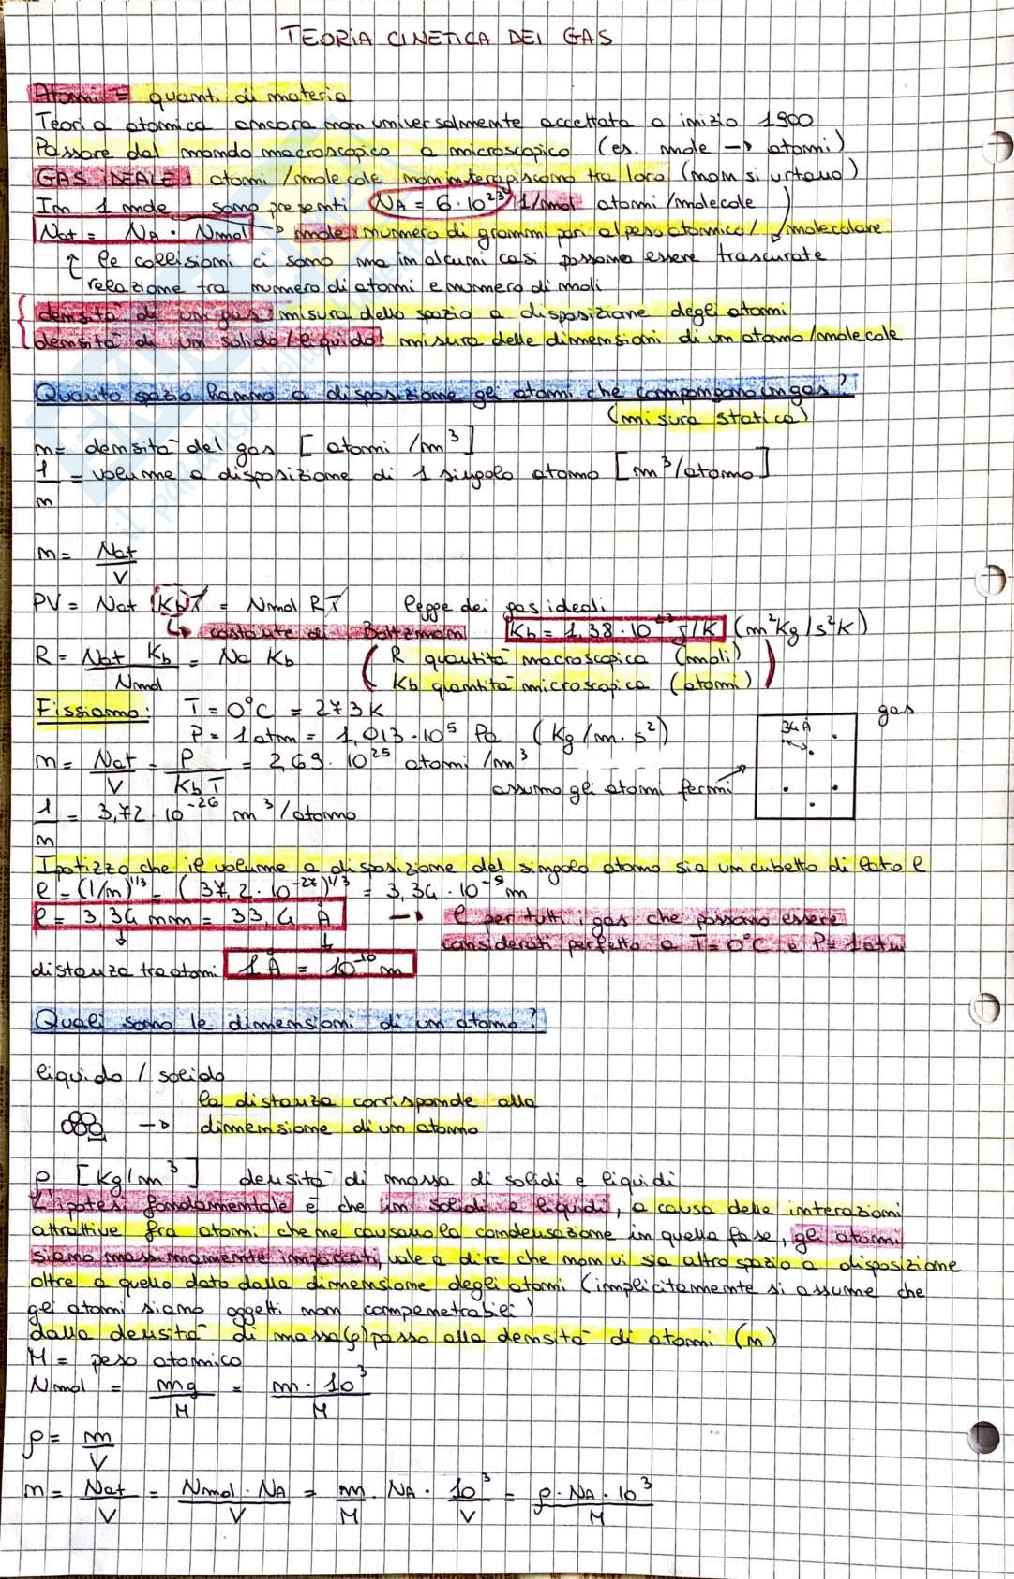 TEORIA CINETICA DEI GAS
Atomi = quanti di materia
Teoria atomica ancora non universalmente accettata a inizio 1900
Passare dal mondo macroscopico a microscopico (es. mole → atomi)
GAS IDEALE: atomi/molecole non interagiscono tra loro (non si urtano)
In 1 mole sono presenti NA = 6·10²³ 1/mol atomi/molecole
Nat = Na · Nmol → mole: numero di grammi pari al peso atomico/molecolare
↑ le collisioni ci sono ma in alcuni casi possono essere trascurate
relazione tra numero di atomi e numero di moli
densità di un gas: misura dello spazio a disposizione degli atomi
densità di un solido/liquido: misura delle dimensioni di un atomo/molecole
Quanto spazio hanno a disposizione gli atomi che compongono un gas?
(misura statica)
n = densità del gas [atomi/m³]
1/n = volume a disposizione di 1 singolo atomo [m³/atomo]
n = Nat/V
PV = Nat KbT = Nmol RT legge dei gas ideali
↳ costante di Boltzmann Kb = 1,38·10⁻²³ J/K (m²Kg/s²K)
R = Nat Kb/Nmol = Na Kb (R quantità macroscopica (moli)
Kb quantità microscopica (atomi))
Fissiamo: T = 0°C = 273K
P = 1 atm = 1,013·10⁵ Pa (Kg/m·s²)
gas
34Å
n = Nat/V = P/KbT = 2,69·10²⁵ atomi/m³
assumo gli atomi fermi
1/n = 3,72·10⁻²⁶ m³/atomo
Ipotizzo che il volume a disposizione del singolo atomo sia un cubetto di lato l
l = (1/n)^1/3 = (37,2·10⁻²⁷)^1/3 = 3,34·10⁻⁹ m
l = 3,34 nm = 33,4 Å → l per tutti i gas che possono essere
considerati perfetto a T=0°C e P=1atm
distanza tra atomi 1Å = 10⁻¹⁰ m
Quali sono le dimensioni di un atomo?
liquido / solido
la distanza corrisponde alla
→ dimensione di un atomo
ρ [Kg/m³] densità di massa di solidi e liquidi
L'ipotesi fondamentale è che in solidi e liquidi, a causa delle interazioni
attrattive fra atomi che ne causano la condensazione in quella fase, gli atomi
siano massimamente impaccati, vale a dire che non vi sia altro spazio a disposizione
oltre a quello dato dalla dimensione degli atomi (implicitamente si assume che
gli atomi siano oggetti non compenetrabili)
dalla densità di massa (ρ) passo alla densità di atomi (n)
M = peso atomico
Nmol = mg/M = m·10³/M
ρ = m/V
n = Nat/V = Nmol·NA/V = m/M · NA · 10³/V = ρ·NA·10³/M